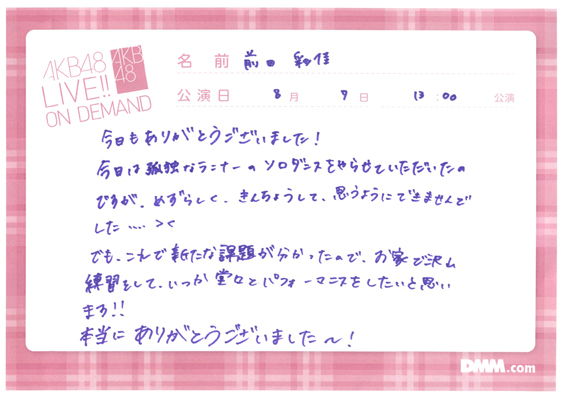 AKB48
LIVE!!
ON DEMAND
AKB
48
名前 前田 彩佳
公演日 8月 9日 13:00 公演
今日もありがとうございました!
今日は孤独なランナーのソロダンスをやらせていただいたの
ですが、めずらしく、きんちょうして、思うようにできませんで
した.... ><
でも、これで新たな課題が分かったので、お家で沢山
練習をして、いつか堂々とパフォーマンスをしたいと思い
ます!!
本当にありがとうございました〜!
DMM.com